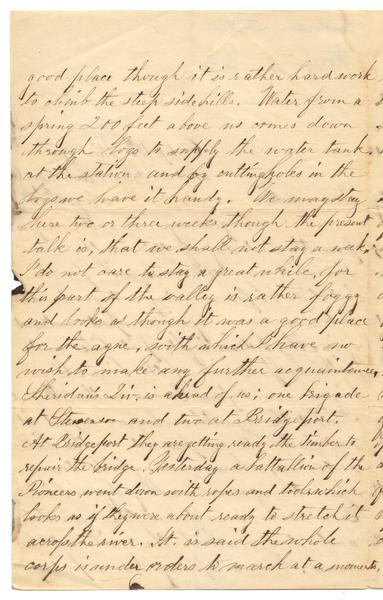 good place though it is rather hard work
to climb the steep side hills. Water from a
spring 200 feet above us comes down
through logs to supply the water tank
at the station and by cutting holes in the
logs we have it handy. We may stay
here two or three weeks though the present
talk is, that we shall not stay a week.
I do not care to stay a great while, for
this part of the valley is rather foggy
and looks as though it was a good place
for the ague, with which I have no
wish to make any further acquaintance.
Sheridan's Div. is ahead of us; one brigade
at Stevenson and two at Bridgeport.
At Bridgeport they are geting ready the timber to
repair the bridge. Yesterday a battallion of the
Pioneers went down with ropes and tools which
looks as if they were about ready to stretch it
across the river. It is said the whole
corps is under orders to march at a moments,